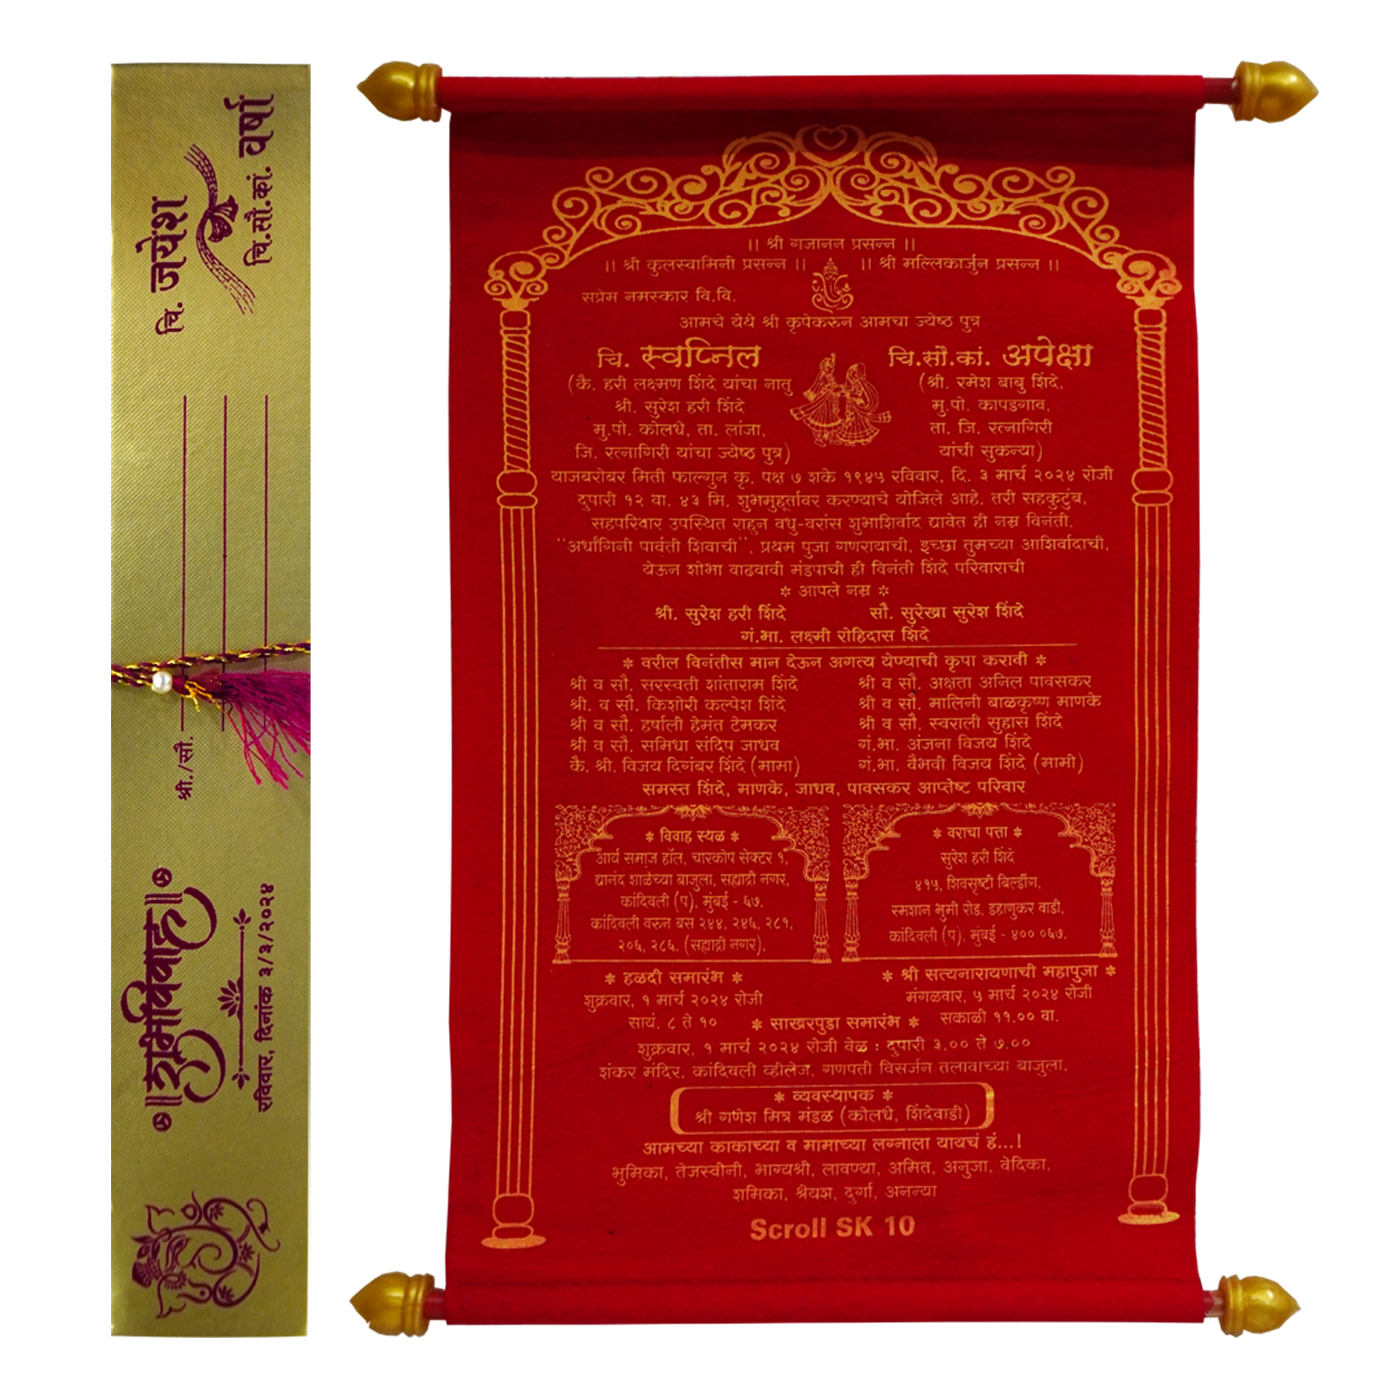 चि. जयेश
चि.सौ.कां. वर्षा
श्री./सौ.
॥शुभविवाह॥
रविवार, दिनांक ३/३/२०२४
।। श्री गजानन प्रसन्न ।।
।। श्री कुलस्वामिनी प्रसन्न ।। ।। श्री मल्लिकार्जुन प्रसन्न ।।
सप्रेम नमस्कार वि.वि.
आमचे येथे श्री कृपेकरुन आमचा ज्येष्ठ पुत्र
चि. स्वप्निल
(कै. हरी लक्ष्मण शिंदे यांचा नातु
श्री. सुरेश हरी शिंदे
मु.पो. कोलधे, ता. लांजा,
जि. रत्नागिरी यांचा ज्येष्ठ पुत्र)
चि.सौ.कां. अपेक्षा
(श्री. रमेश बाबु शिंदे,
मु.पो. कापडगाव,
ता. जि. रत्नागिरी
यांची सुकन्या)
याजबरोबर मिती फाल्गुन कृ. पक्ष ७ शके १९४५ रविवार, दि. ३ मार्च २०२४ रोजी
दुपारी १२ वा. ४३ मि. शुभमुहूर्तावर करण्याचे योजिले आहे. तरी सहकुटुंब,
सहपरिवार उपस्थित राहुन वधु-वरांस शुभाशिर्वाद द्यावेत ही नम्र विनंती.
“अर्धांगिनी पार्वती शिवाची”, प्रथम पुजा गणरायाची, इच्छा तुमच्या आशिर्वादाची,
येऊन शोभा वाढवावी मंडपाची ही विनंती शिंदे परिवाराची
* आपले नम्र *
श्री. सुरेश हरी शिंदे सौ. सुरेखा सुरेश शिंदे
गं.भा. लक्ष्मी रोहिदास शिंदे
* वरील विनंतीस मान देऊन अगत्य येण्याची कृपा करावी *
श्री व सौ. सरस्वती शांताराम शिंदे श्री व सौ. अक्षता अनिल पावसकर
श्री. व सौ. किशोरी कल्पेश शिंदे श्री व सौ. मालिनी बाळकृष्ण माणके
श्री व सौ. हर्षाली हेमंत टेमकर श्री व सौ. स्वराली सुहास शिंदे
श्री व सौ. समिधा संदिप जाधव गं.भा. अंजना विजय शिंदे
कै. श्री. विजय दिगंबर शिंदे (मामा) गं.भा. वैभवी विजय शिंदे (मामी)
समस्त शिंदे, माणके, जाधव, पावसकर आप्तेष्ट परिवार
* विवाह स्थळ *
आर्य समाज हॉल, चारकोप सेक्टर १,
द्यानंद शाळेच्या बाजुला, सह्याद्री नगर,
कांदिवली (प), मुंबई - ६७.
कांदिवली वरुन बस २४४, २४६, २८१,
२०६, २८६. (सह्याद्री नगर),
* वराचा पत्ता *
सुरेश हरी शिंदे
४१५, शिवसृष्टी बिल्डींग,
स्मशान भुमी रोड, डहाणुकर वाडी,
कांदिवली (प), मुंबई - ४०० ०६७.
* हळदी समारंभ *
शुक्रवार, १ मार्च २०२४ रोजी
सायं. ८ ते १०
* श्री सत्यनारायणाची महापुजा *
मंगळवार, ५ मार्च २०२४ रोजी
सकाळी ११.०० वा.
* साखरपुडा समारंभ *
शुक्रवार, १ मार्च २०२४ रोजी वेळ : दुपारी ३.०० ते ७.००
शंकर मंदिर, कांदिवली व्हीलेज, गणपती विसर्जन तलावाच्या बाजुला.
* व्यवस्थापक *
श्री गणेश मित्र मंडळ (कोलधे, शिंदेवाडी)
आमच्या काकाच्या व मामाच्या लग्नाला यायचं हं...!
भुमिका, तेजस्वीनी, भाग्यश्री, लावण्या, अमित, अनुजा, वेदिका,
शमिका, श्रेयश, दुर्गा, अनन्या
Scroll SK 10